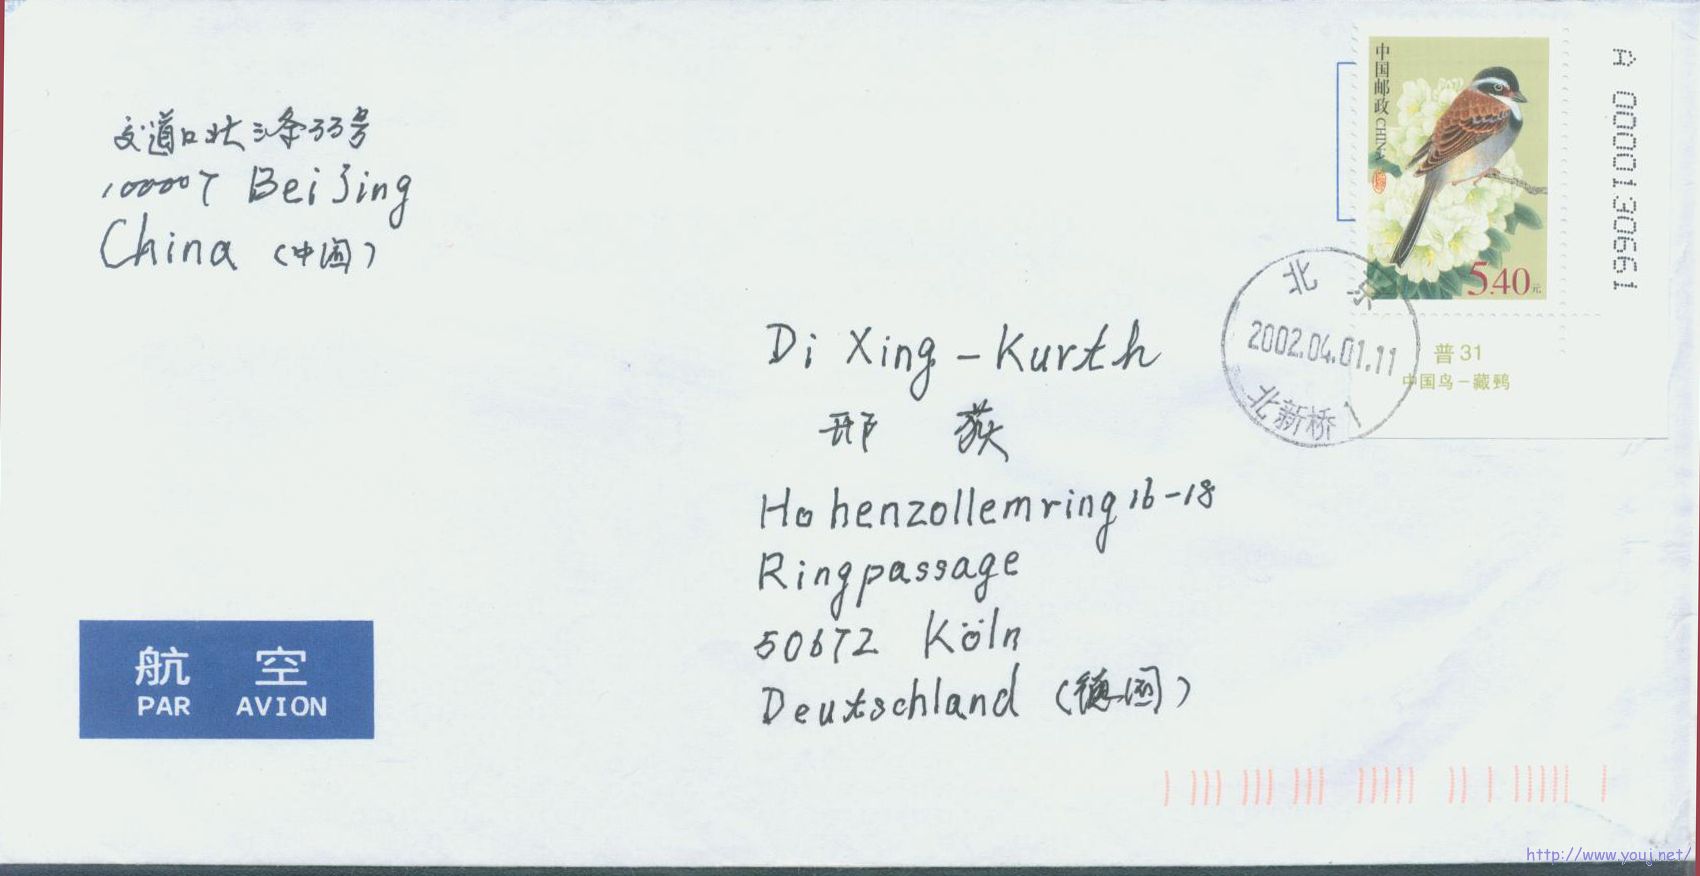 交道口北三条33号
100007 BeiJing
China (中国)
中国邮政 CHINA
5.40元
A 0000130661
普31
中国鸟-藏鹀
北京
2002.04.01.11
北新桥 1
Di Xing-Kurth
邢 荻
Hohenzollernring 16-18
Ringpassage
50672 Köln
Deutschland (德国)
航 空
PAR AVION
http://www.youj.net/